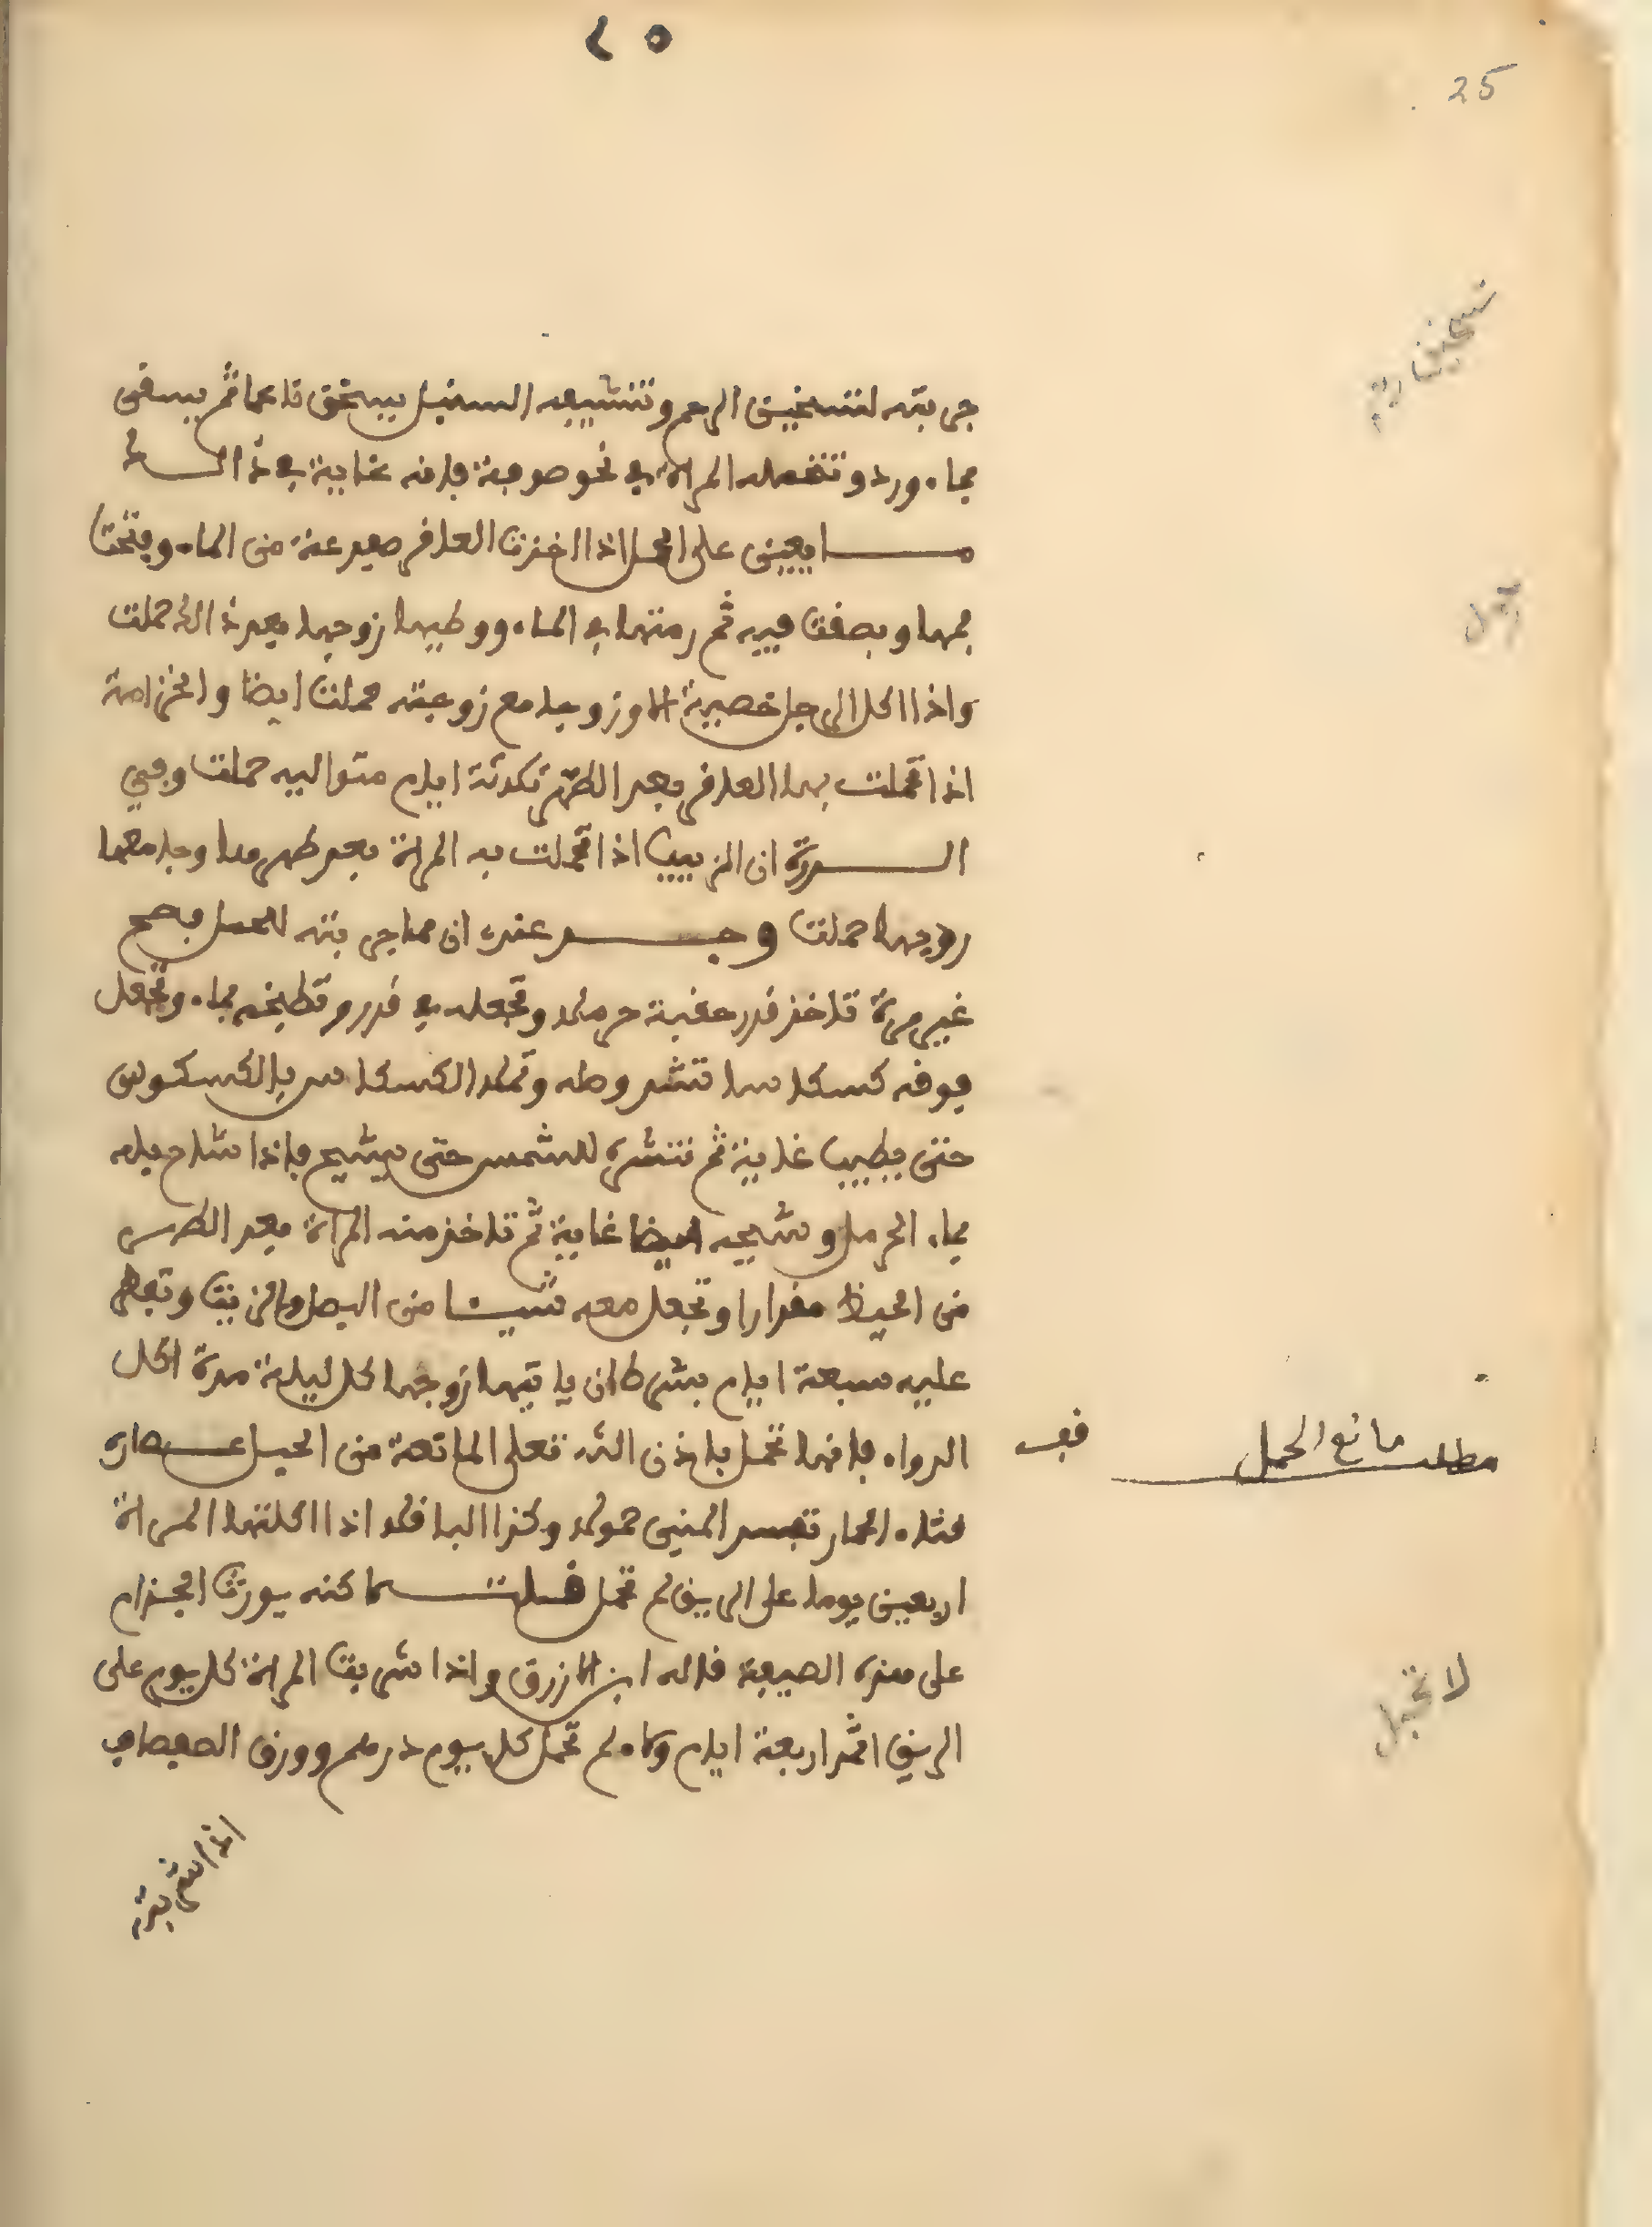 ٢٥
25
تسخين الرحم
جربته لتسخين الرحم وتنشيفه السنبل يسحق ناعما ثم يسقى
بماء ورد وتتحمله المراة في نحو صوفة فإنه غاية في ذالــك
مــــا يعين على الحبل اذا اخذت العاقر ضفدعة من الماء وفتحت
فمها وبصقت فيه ثم رمتها في الماء ووطيها زوجها بعد ذالك حملت
واذا اكل الرجل خصية الاوز وجامع زوجته حملت ايضا والخزامة
اذا تحملت بها العاقر بعد الطهر ثلاثة ايام متواليه حملت وفي
الــــدرة ان الزبيب اذا تحملت به المراة بعد طهرها وجامعها
زوجها حملت وجــــد عنده ان مما جربته للحمل فصح
غير مرة تاخذ قدر حفنة حرمل وتجعله في قدر وتطبخه بماء وتجعل
فوقه كسكاسا تشد وطه وتملا الكسكاس بالكسكوس
حتى يطيب غاية ثم تنشره للشمس حتى يشيح فإذا شاح بله
بماء الحرمل وشيحه ايضا غاية ثم تاخذ منه المراة بعد الطهر
من الحيض مقدارا وتجعل معه شيــئا من البصل والزيت وتفطر
عليه سبعة ايام بشرط ان ياتيها زوجها كل ليلة مدة اكل
الدواء فإنها تحمل بإذن الله تعلى المانعة من الحبل عــصارة
مطلب مانع الحمل
قف
قثاء الحمار تفسد المنى حمولا وكذا الباقلا اذا اكلتها المــراة
اربعين يوما على الريق لم تحمل قــلت لاكنه يورث الجــذام
على هذه الصيفة قاله ابن الازرق واذا شربت المراة كل يوم على
لا تحبل
الريق اربعة ايام ولاء لم تحمل كل يوم درهم وورق الصفصاف
اذا شربته